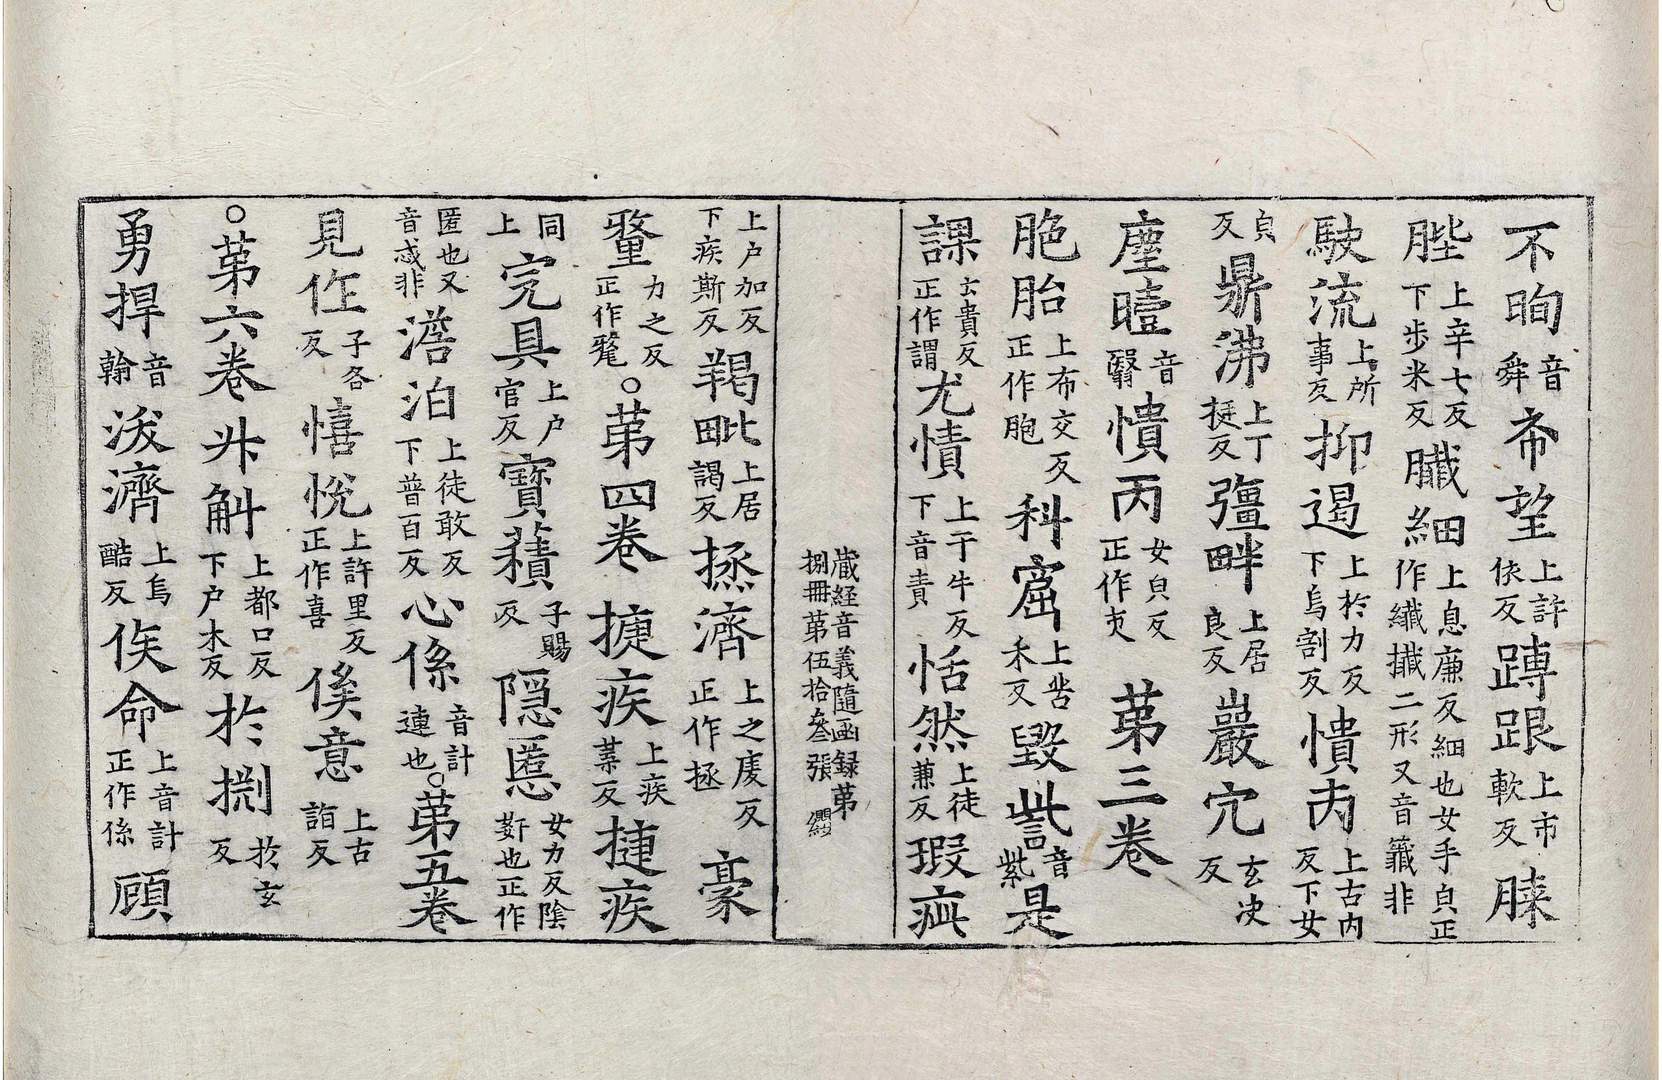 不眴音舜 希望上許依反 踌跟上市軟反 䏶
䏶上辛七反下步米反 臟細上息廉反細也女手皃正作纖攕二形又音籖非
駛流上所事反 抑遏上於力反下烏割反 憒丙上古內反下女
皃反 鼎沸上丁挺反 彊畔上居良反 巖穴玄决反
塵曀音翳 憒丙女皃反正作吏 苐三卷
脃胎上布交反正作胞 科窟上苦禾反 毀訾音紫 是
課云貴反正作謂 尤㥽上于牛反下音責 恬然上徒兼反 瑕疵
藏経音義隨函録苐捌冊第伍拾叄張 纓
上户加反下疾斯反 羯毗上居謁反 拯濟上之庱反正作拯 豪
氂力之反正作氂 ○苐四卷 㨗疾上疾葉反 捷疾
同上 完具上户官反 寶積子賜反 隠匿女力反隂姧也正作
匿也又音惑非 澹泊上徒敢反下普百反 心係音計連也 ○苐五卷
見作子各反 憘悅上許里反正作喜 傒意上古詣反
○苐六卷 升斛上都口反下户木反 於捌於玄反
勇捍音翰 沷濟上烏酷反 俟命上音計正作係 頋